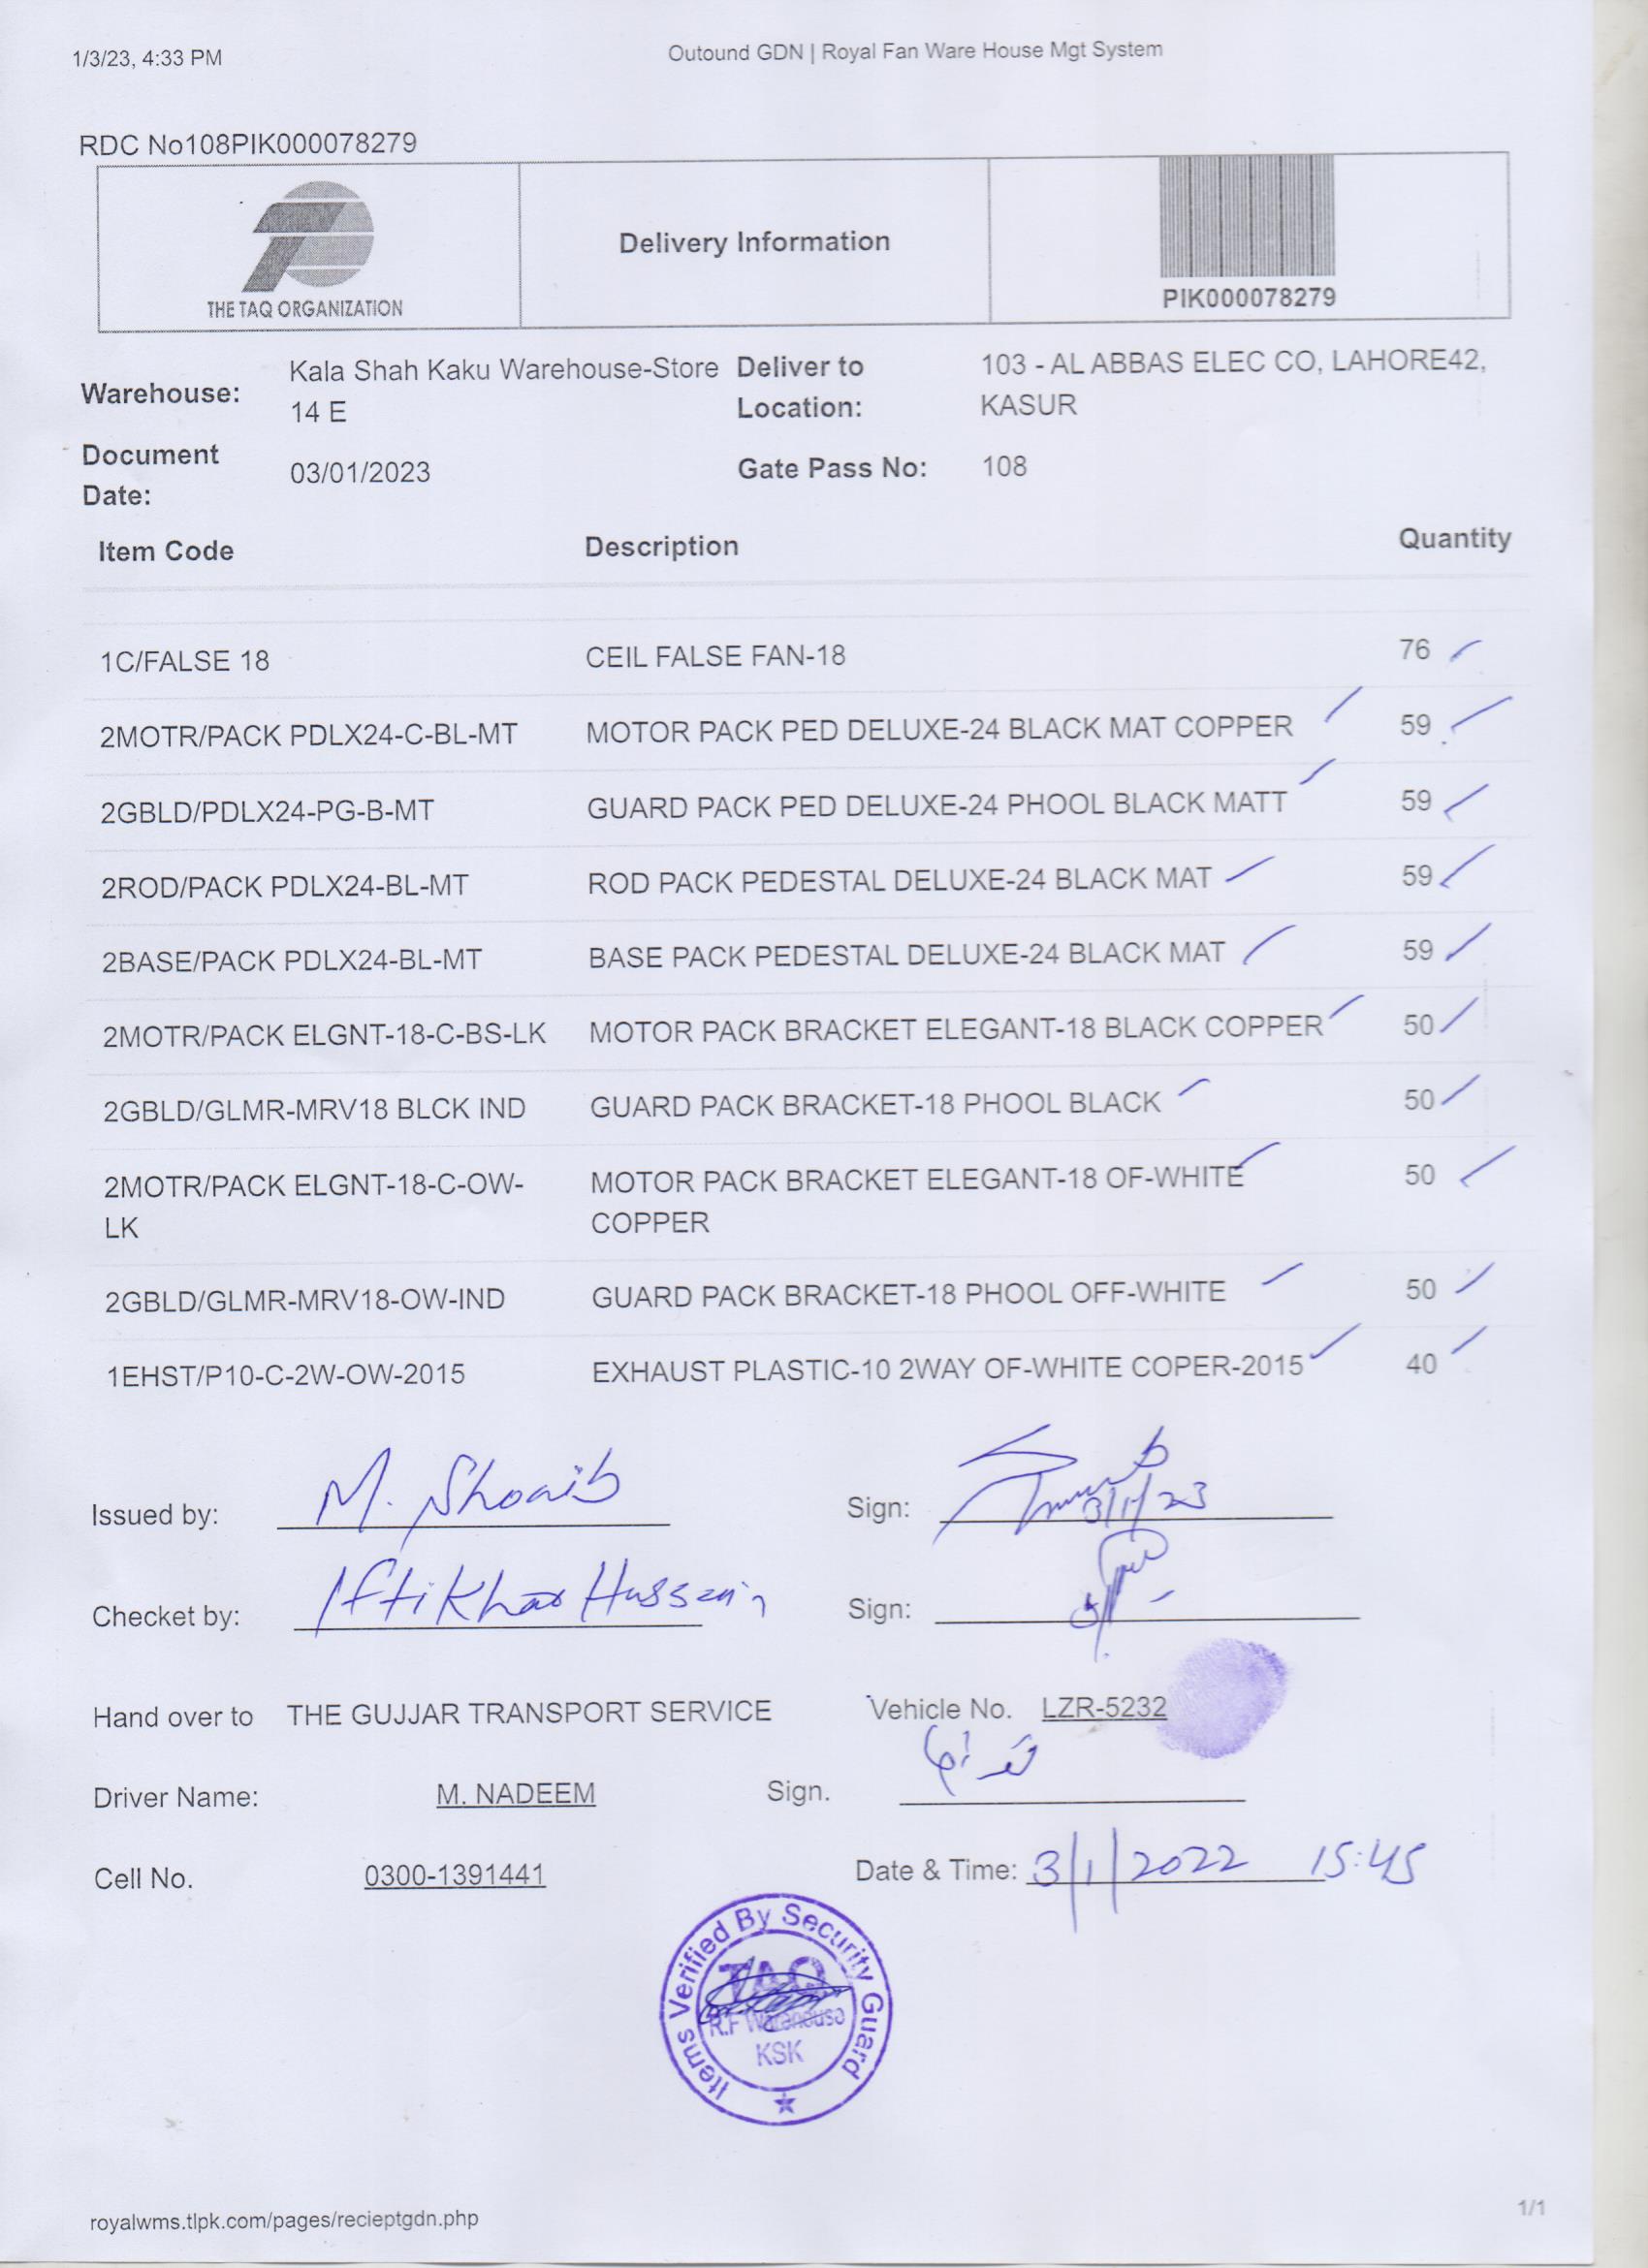 1/3/23, 4:33 PM
Outound GDN | Royal Fan Ware House Mgt System
RDC No108PIK000078279
THE TAQ ORGANIZATION
Delivery Information
PIK000078279
Warehouse: Kala Shah Kaku Warehouse-Store 14 E
Deliver to Location: 103 - AL ABBAS ELEC CO, LAHORE42, KASUR
Document Date: 03/01/2023
Gate Pass No: 108
Item Code Description Quantity
1C/FALSE 18 CEIL FALSE FAN-18 76
2MOTR/PACK PDLX24-C-BL-MT MOTOR PACK PED DELUXE-24 BLACK MAT COPPER 59
2GBLD/PDLX24-PG-B-MT GUARD PACK PED DELUXE-24 PHOOL BLACK MATT 59
2ROD/PACK PDLX24-BL-MT ROD PACK PEDESTAL DELUXE-24 BLACK MAT 59
2BASE/PACK PDLX24-BL-MT BASE PACK PEDESTAL DELUXE-24 BLACK MAT 59
2MOTR/PACK ELGNT-18-C-BS-LK MOTOR PACK BRACKET ELEGANT-18 BLACK COPPER 50
2GBLD/GLMR-MRV18 BLCK IND GUARD PACK BRACKET-18 PHOOL BLACK 50
2MOTR/PACK ELGNT-18-C-OW-LK MOTOR PACK BRACKET ELEGANT-18 OF-WHITE COPPER 50
2GBLD/GLMR-MRV18-OW-IND GUARD PACK BRACKET-18 PHOOL OFF-WHITE 50
1EHST/P10-C-2W-OW-2015 EXHAUST PLASTIC-10 2WAY OF-WHITE COPER-2015 40
Issued by: M. Shoaib Sign: 3/1/23
Checket by: Iftikhar Hussain Sign:
Hand over to THE GUJJAR TRANSPORT SERVICE Vehicle No. LZR-5232
Driver Name: M. NADEEM Sign.
Cell No. 0300-1391441 Date & Time: 3/1/2022 15:45
Items Verified By Security Guard
TAQ
R.F Warehouse
KSK
royalwms.tlpk.com/pages/recieptgdn.php
1/1